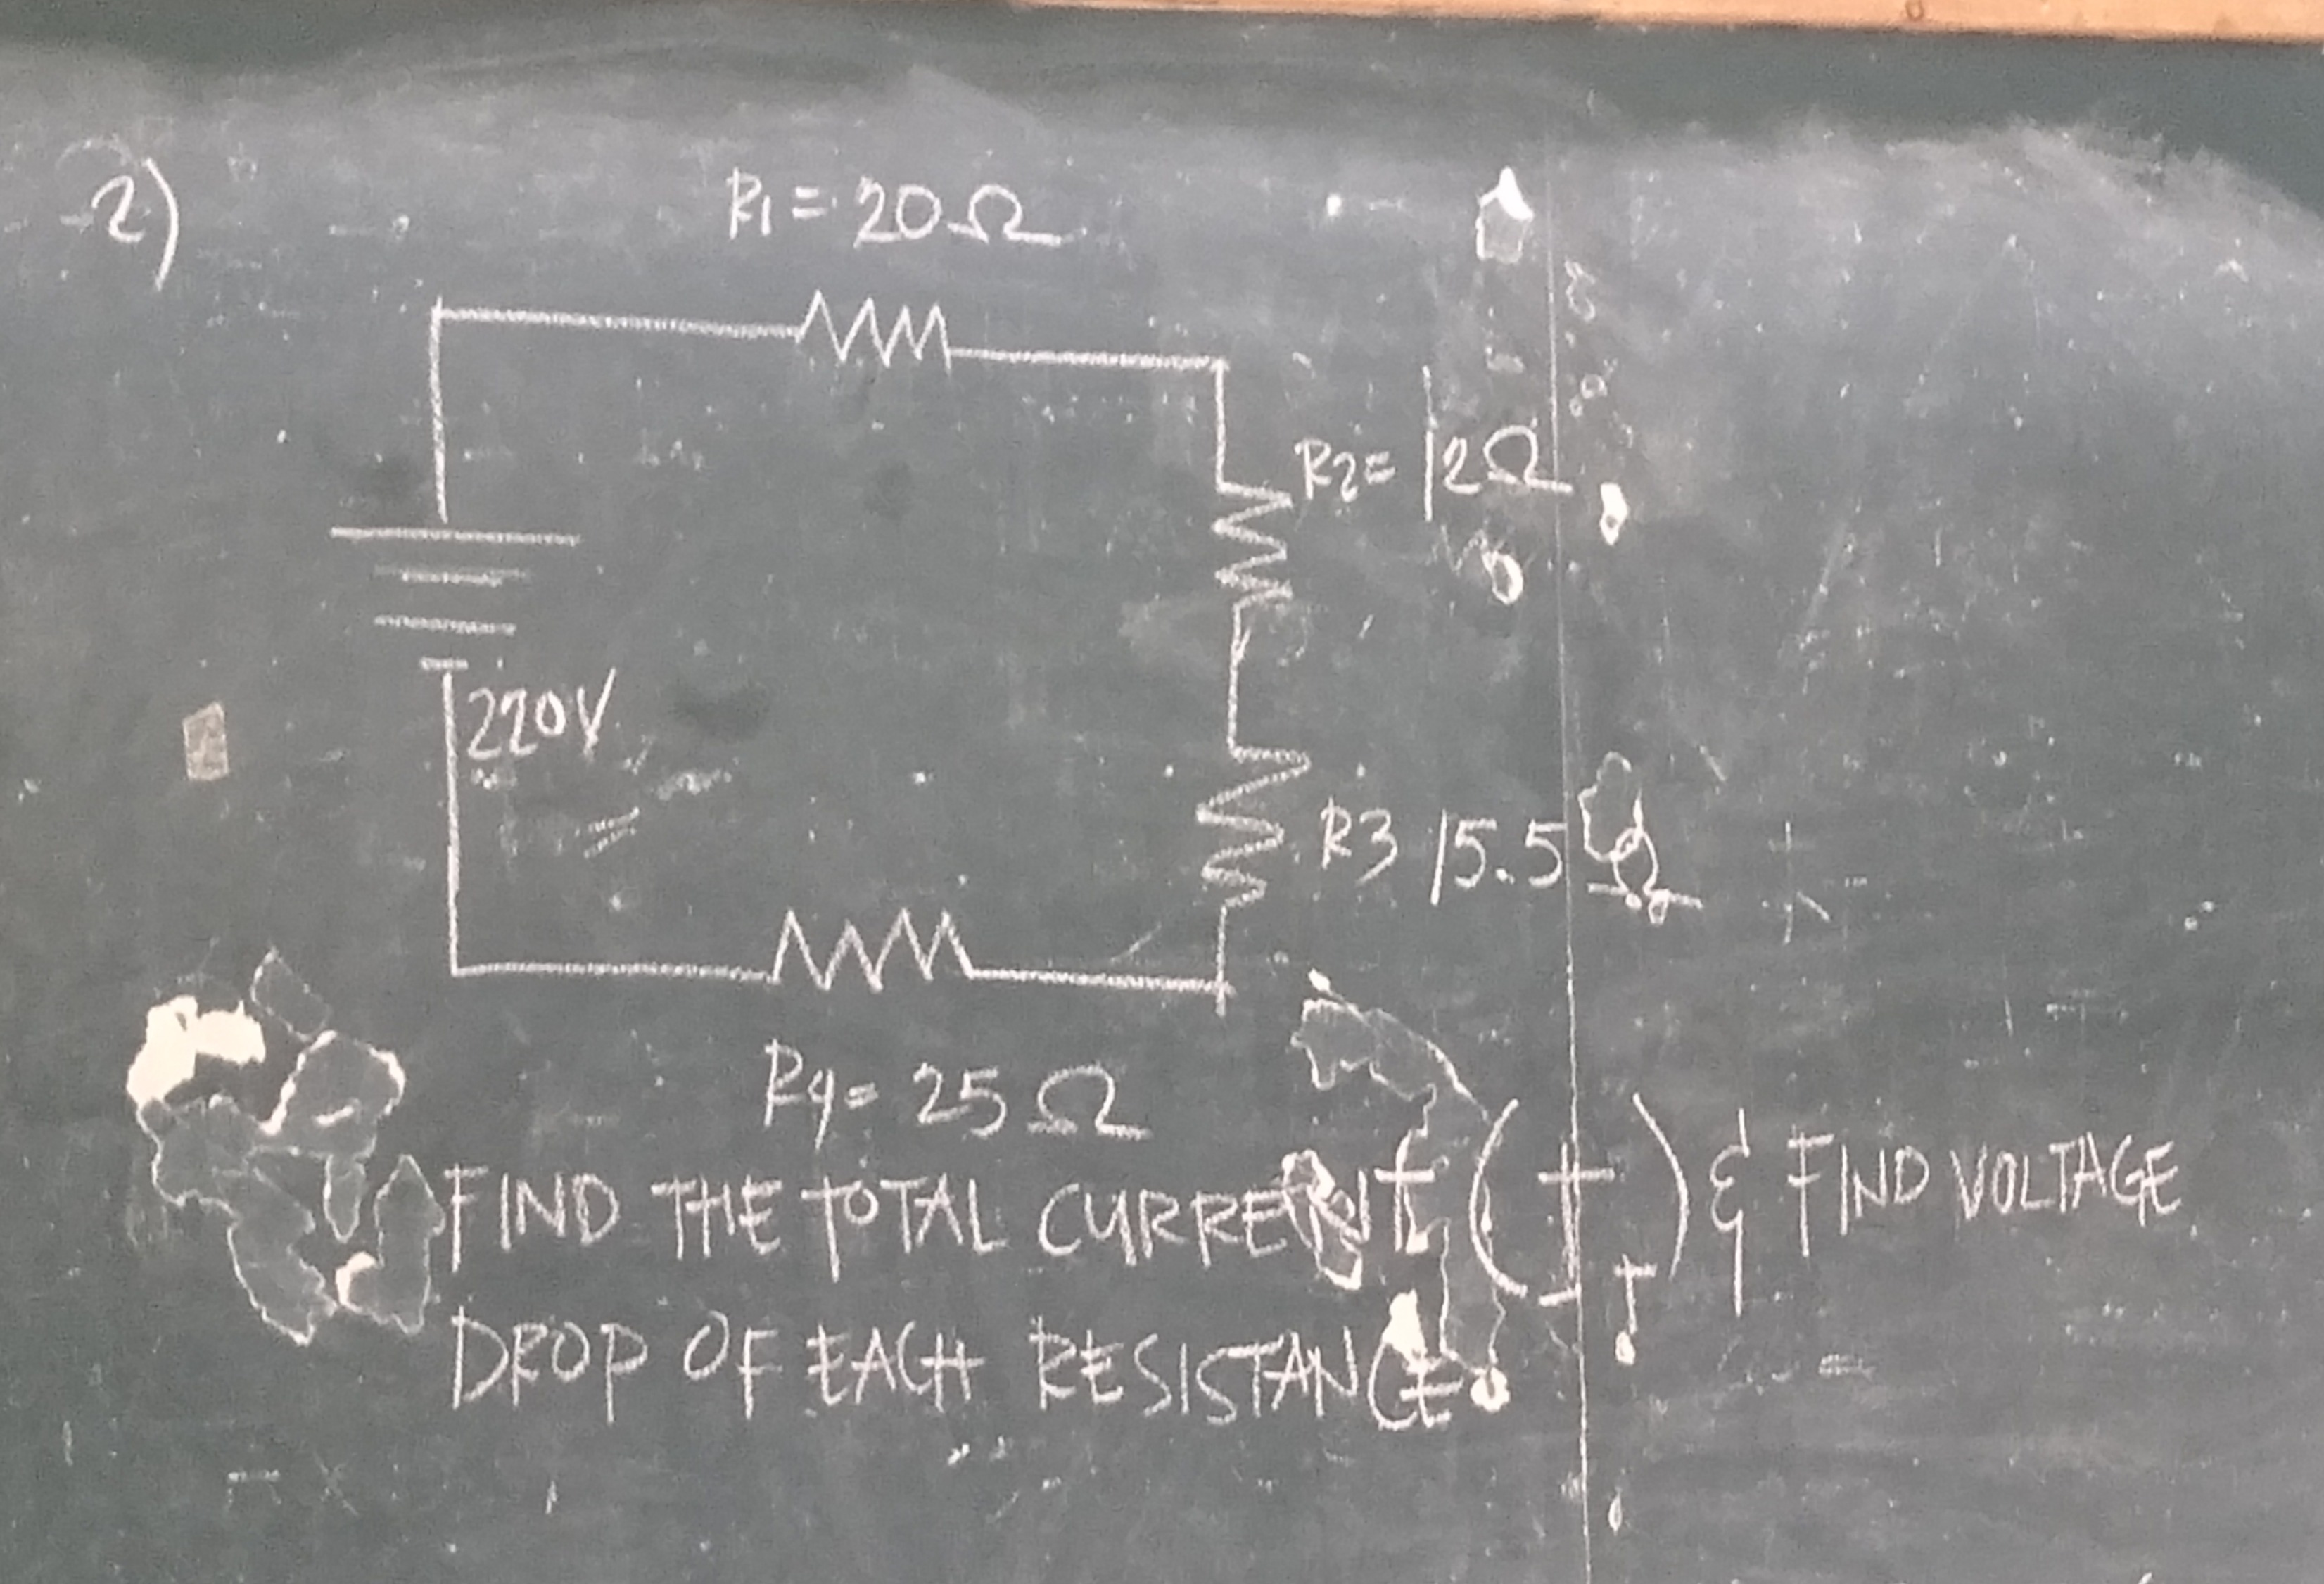 2)
R1 = 20Ω
R2 = 12Ω
220V
R3 15.5Ω
R4 = 25Ω
FIND THE TOTAL CURRENT (IT) & FIND VOLTAGE
DROP OF EACH RESISTANCE.